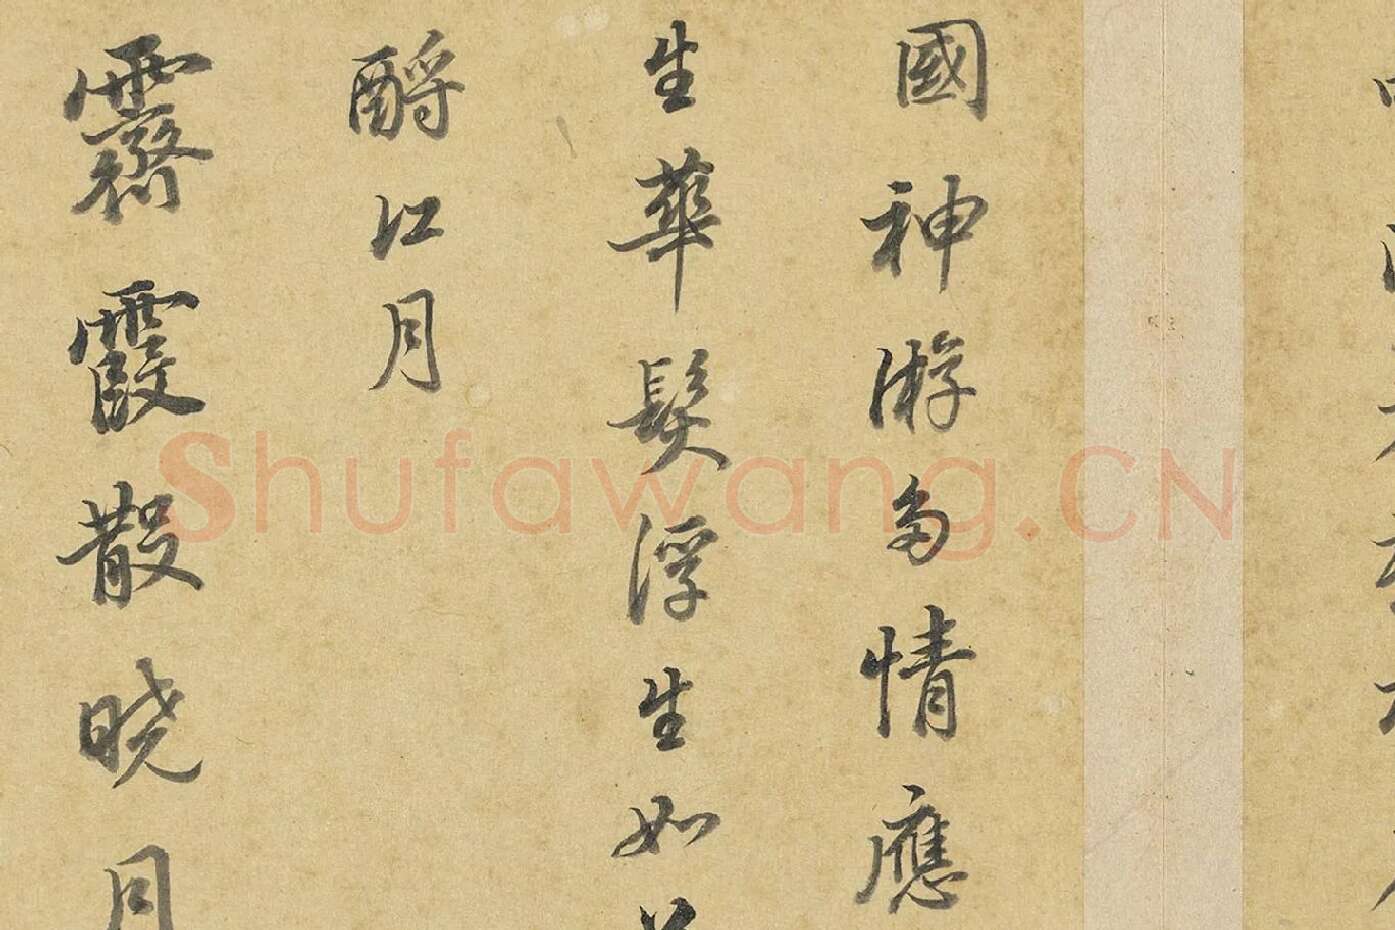 國神游多情應
生華髮浮生如
酹江月
霽霞散曉月
Shufawang.CN